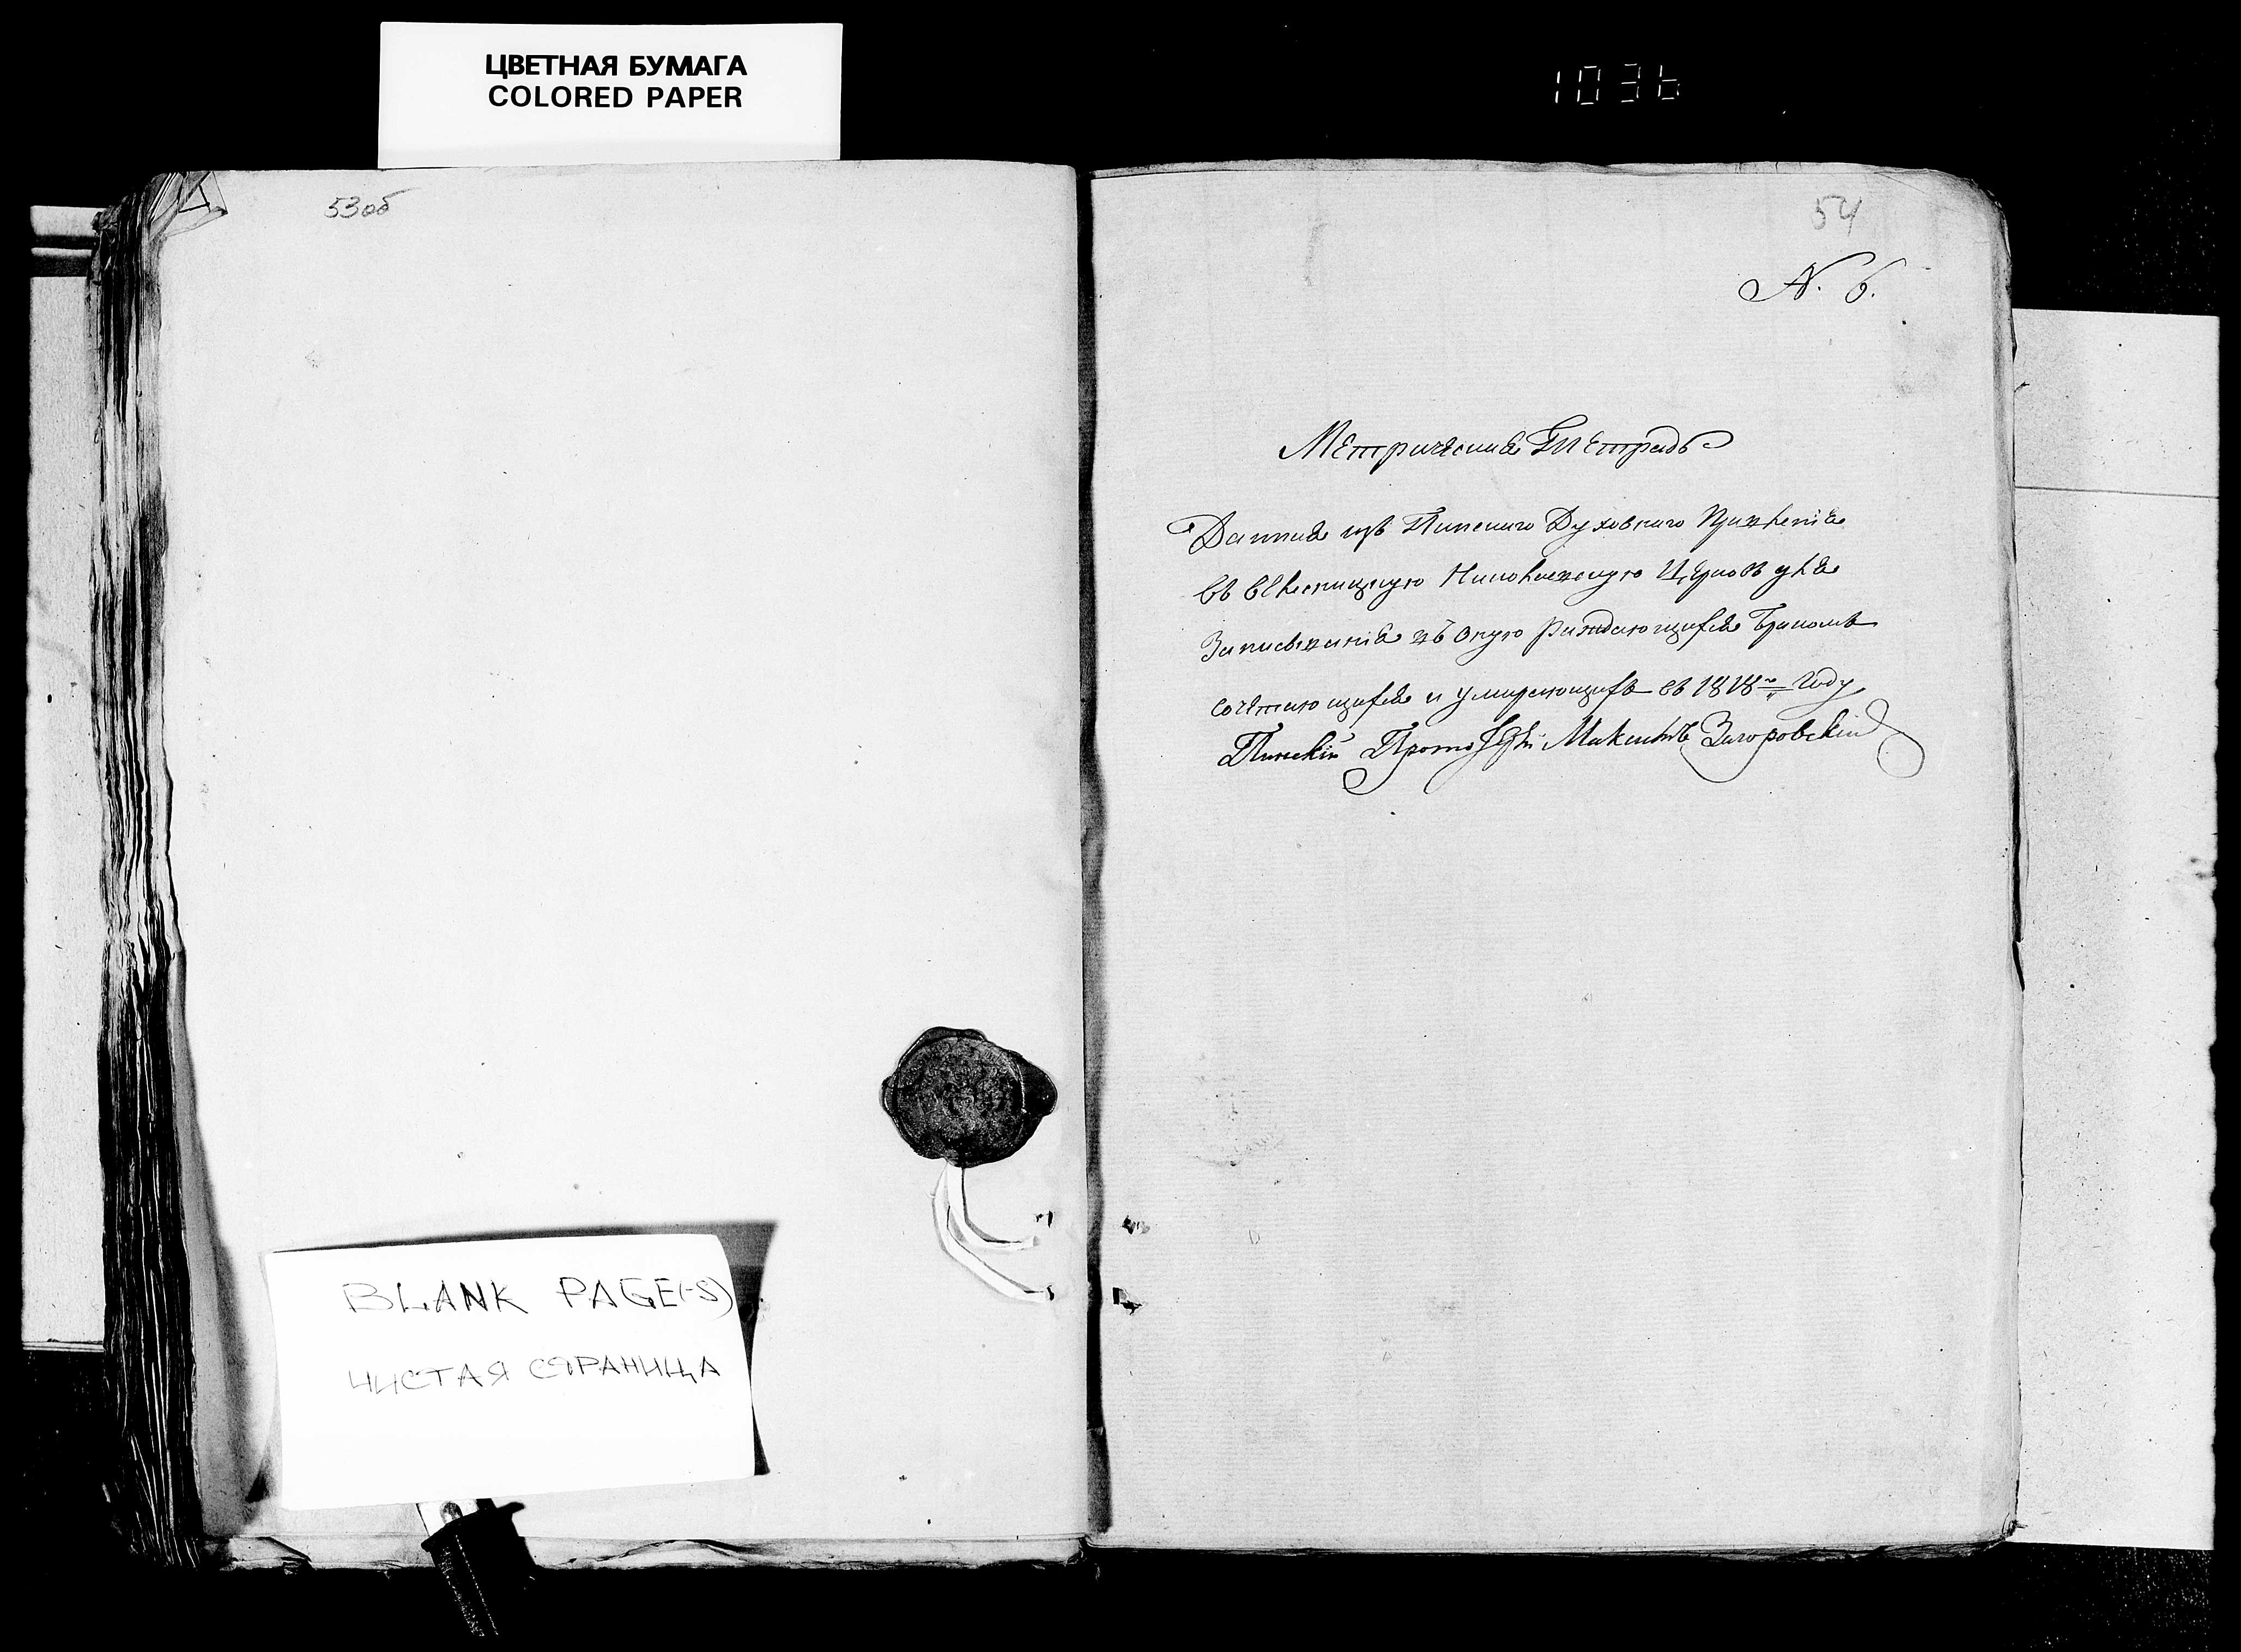 ЦВЕТНАЯ БУМАГА
COLORED PAPER
1036
53об
54
N. 6.
Метрическая Тетрадь
Данная изъ Пинскаго Духовнаго Правленія
въ Николаевскую Церковь для
Записыванія въ оную раждающихся Бракомъ
сочетающихся и умирающихъ въ 1818м Году
Пинскій Прото Загоровскій
BLANK PAGE(-S)
ЧИСТАЯ СТРАНИЦА